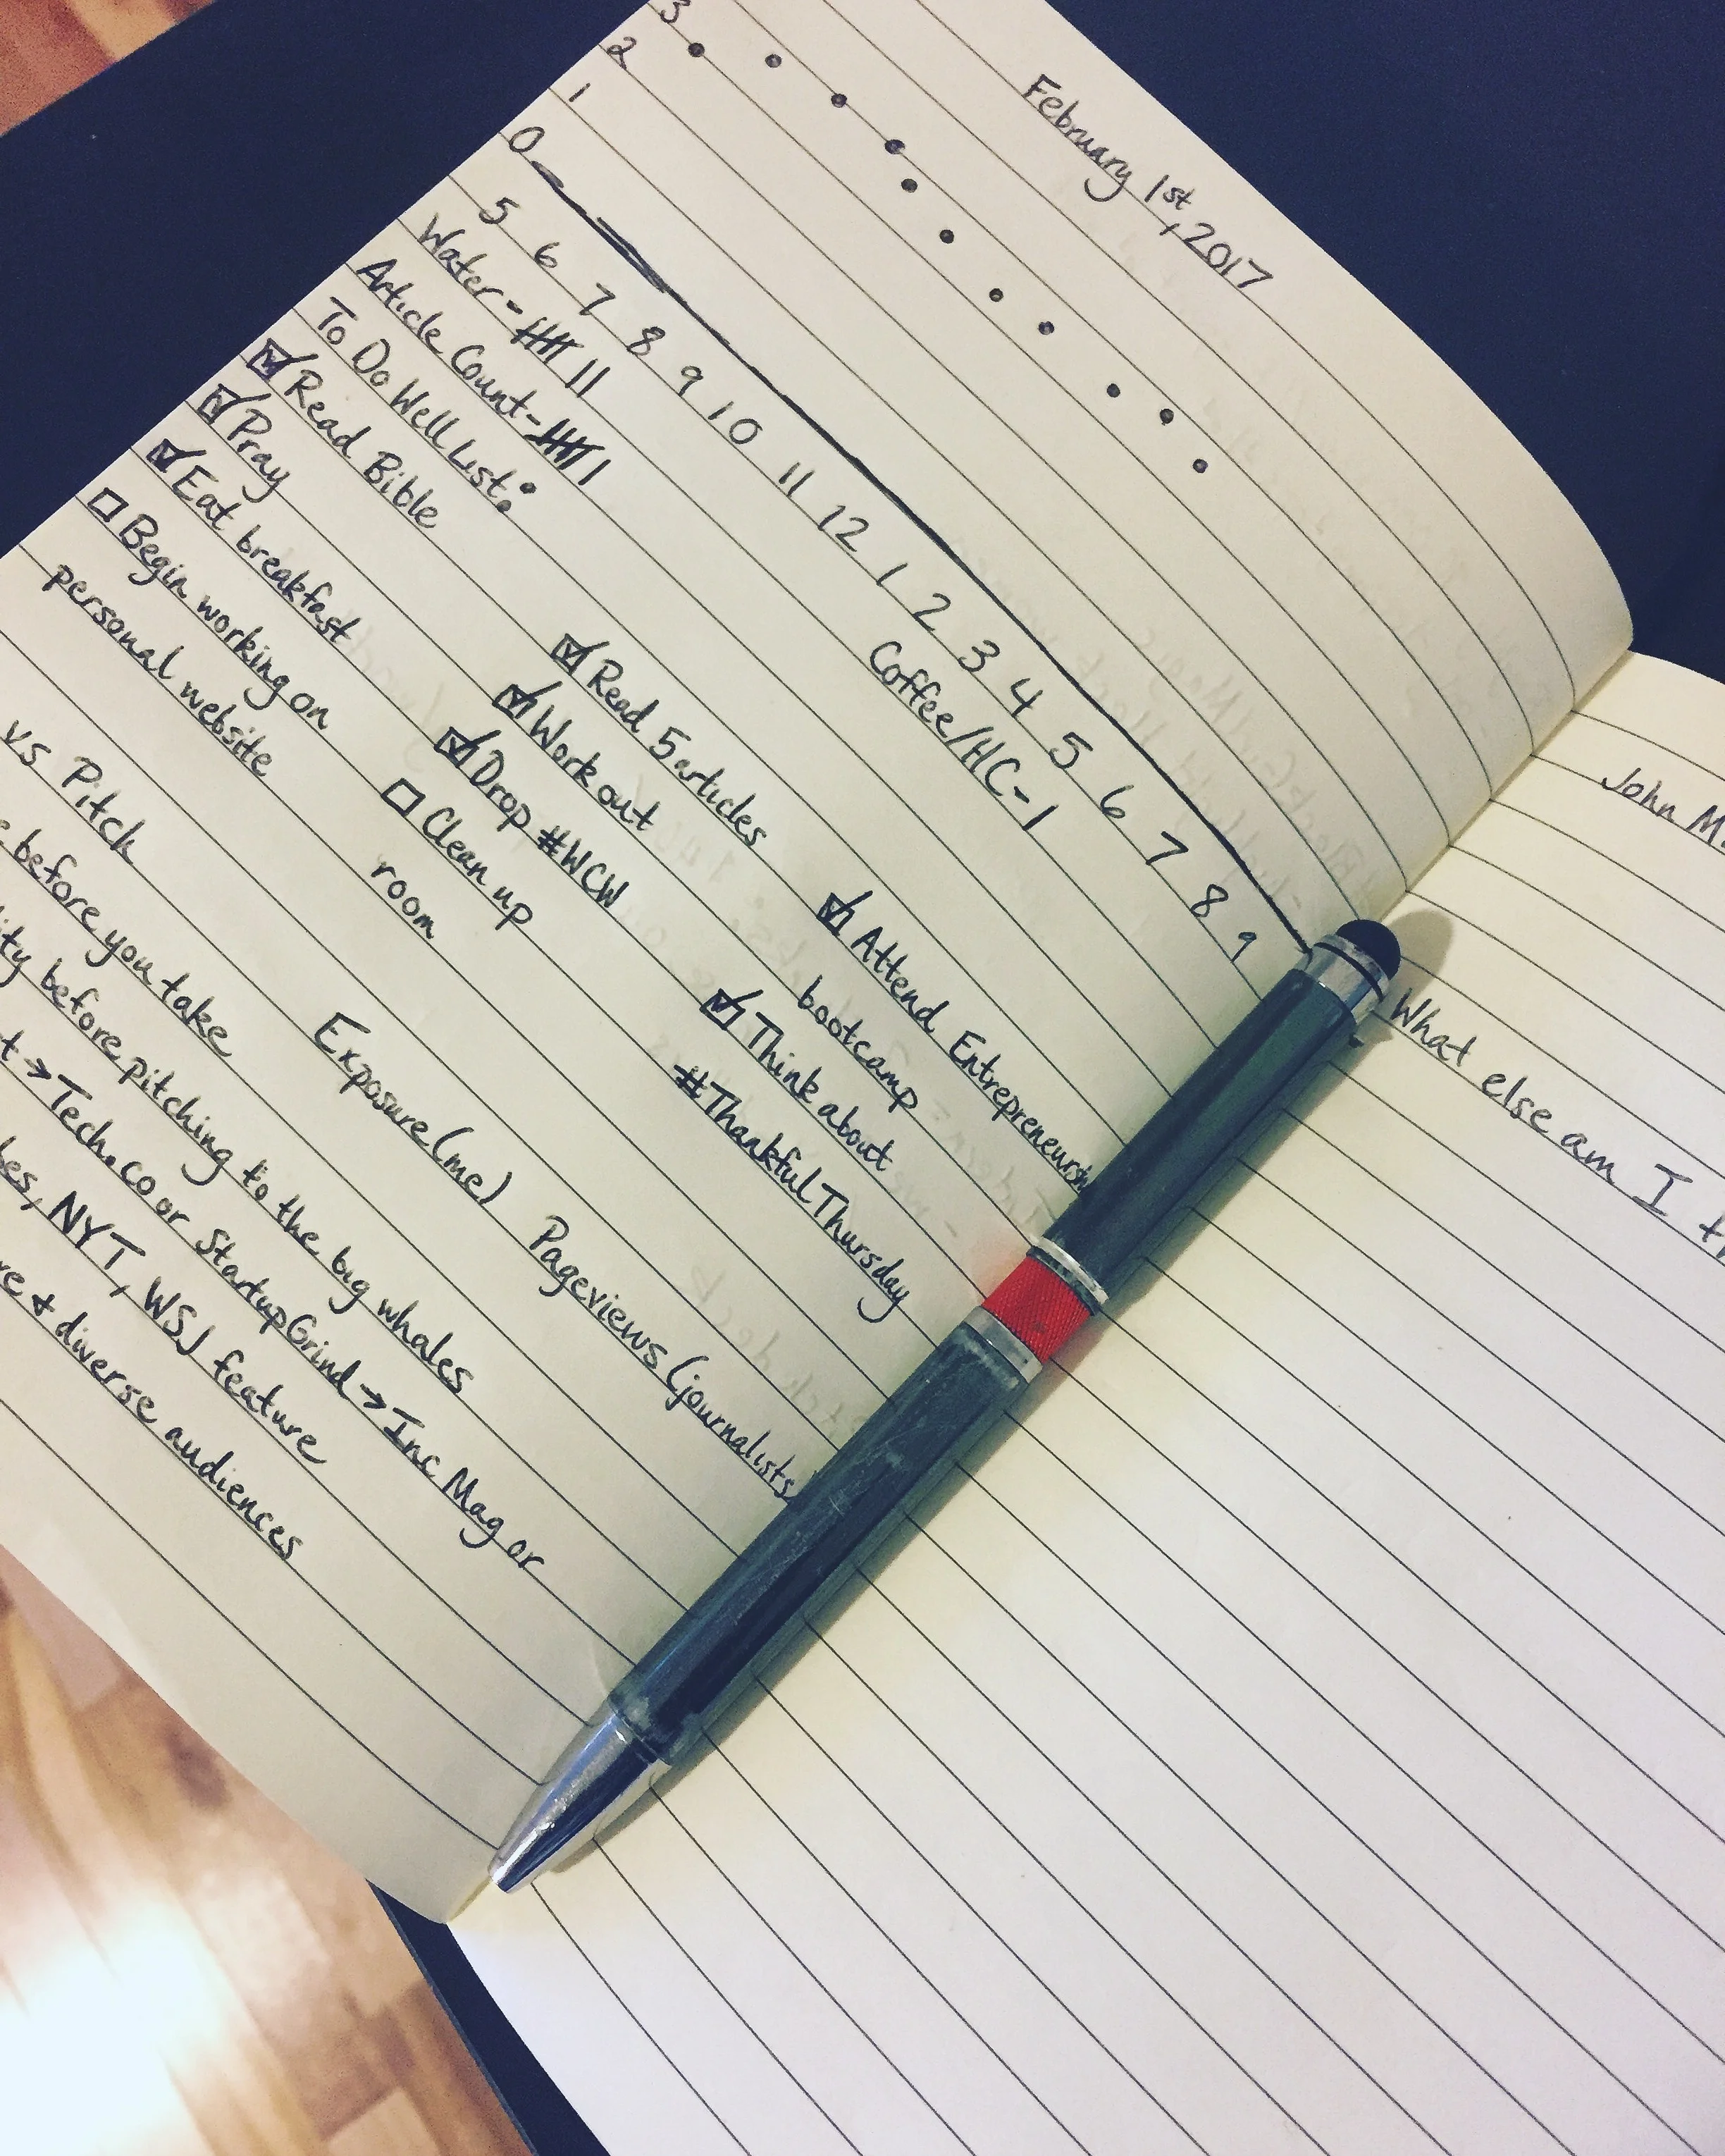 February 1st, 2017
3
2
1
0
5 6 7 8 9 10 11 12 1 2 3 4 5 6 7 8 9
Water - 卌 II Coffee/HC - 1
Article Count - 卌 I
To Do Well List:
☑ Read Bible ☑ Read 5 articles ☑ Attend Entrepreneursh
☑ Pray ☑ Work out bootcamp
☑ Eat breakfast ☑ Drop #WCW ☑ Think about
☐ Begin working on ☐ Clean up #ThankfulThursday
personal website room
vs Pitch Exposure (me) Pageviews (journalists)
before you take
ity before pitching to the big whales
t → Tech.co or StartupGrind → Inc Mag or
bes, NYT, WSJ feature
re & diverse audiences
John M
What else am I t